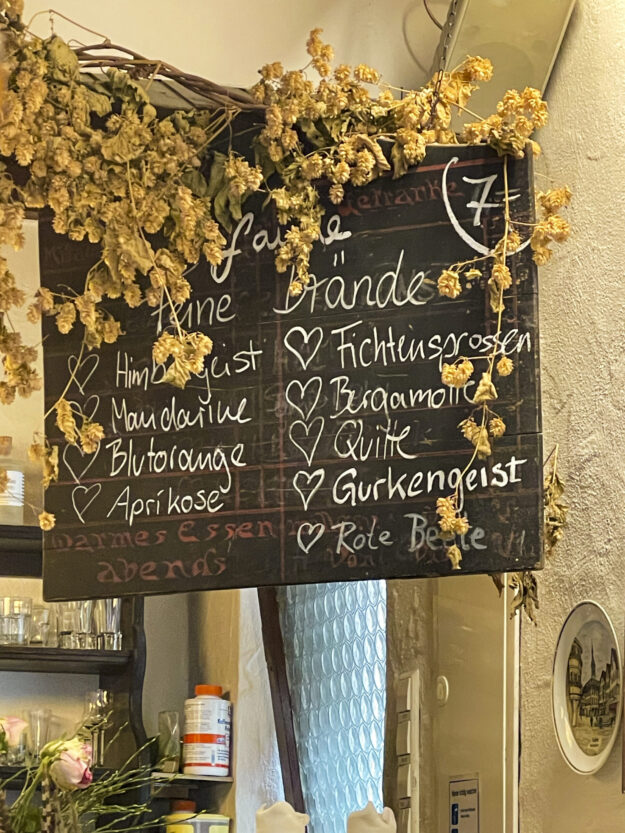 7-
feine Brände
♡ Himbeergeist
♡ Mandarine
♡ Blutorange
♡ Aprikose
♡ Fichtensprossen
♡ Bergamotte
♡ Quitte
♡ Gurkengeist
♡ Rote Beete
warmes Essen
abends